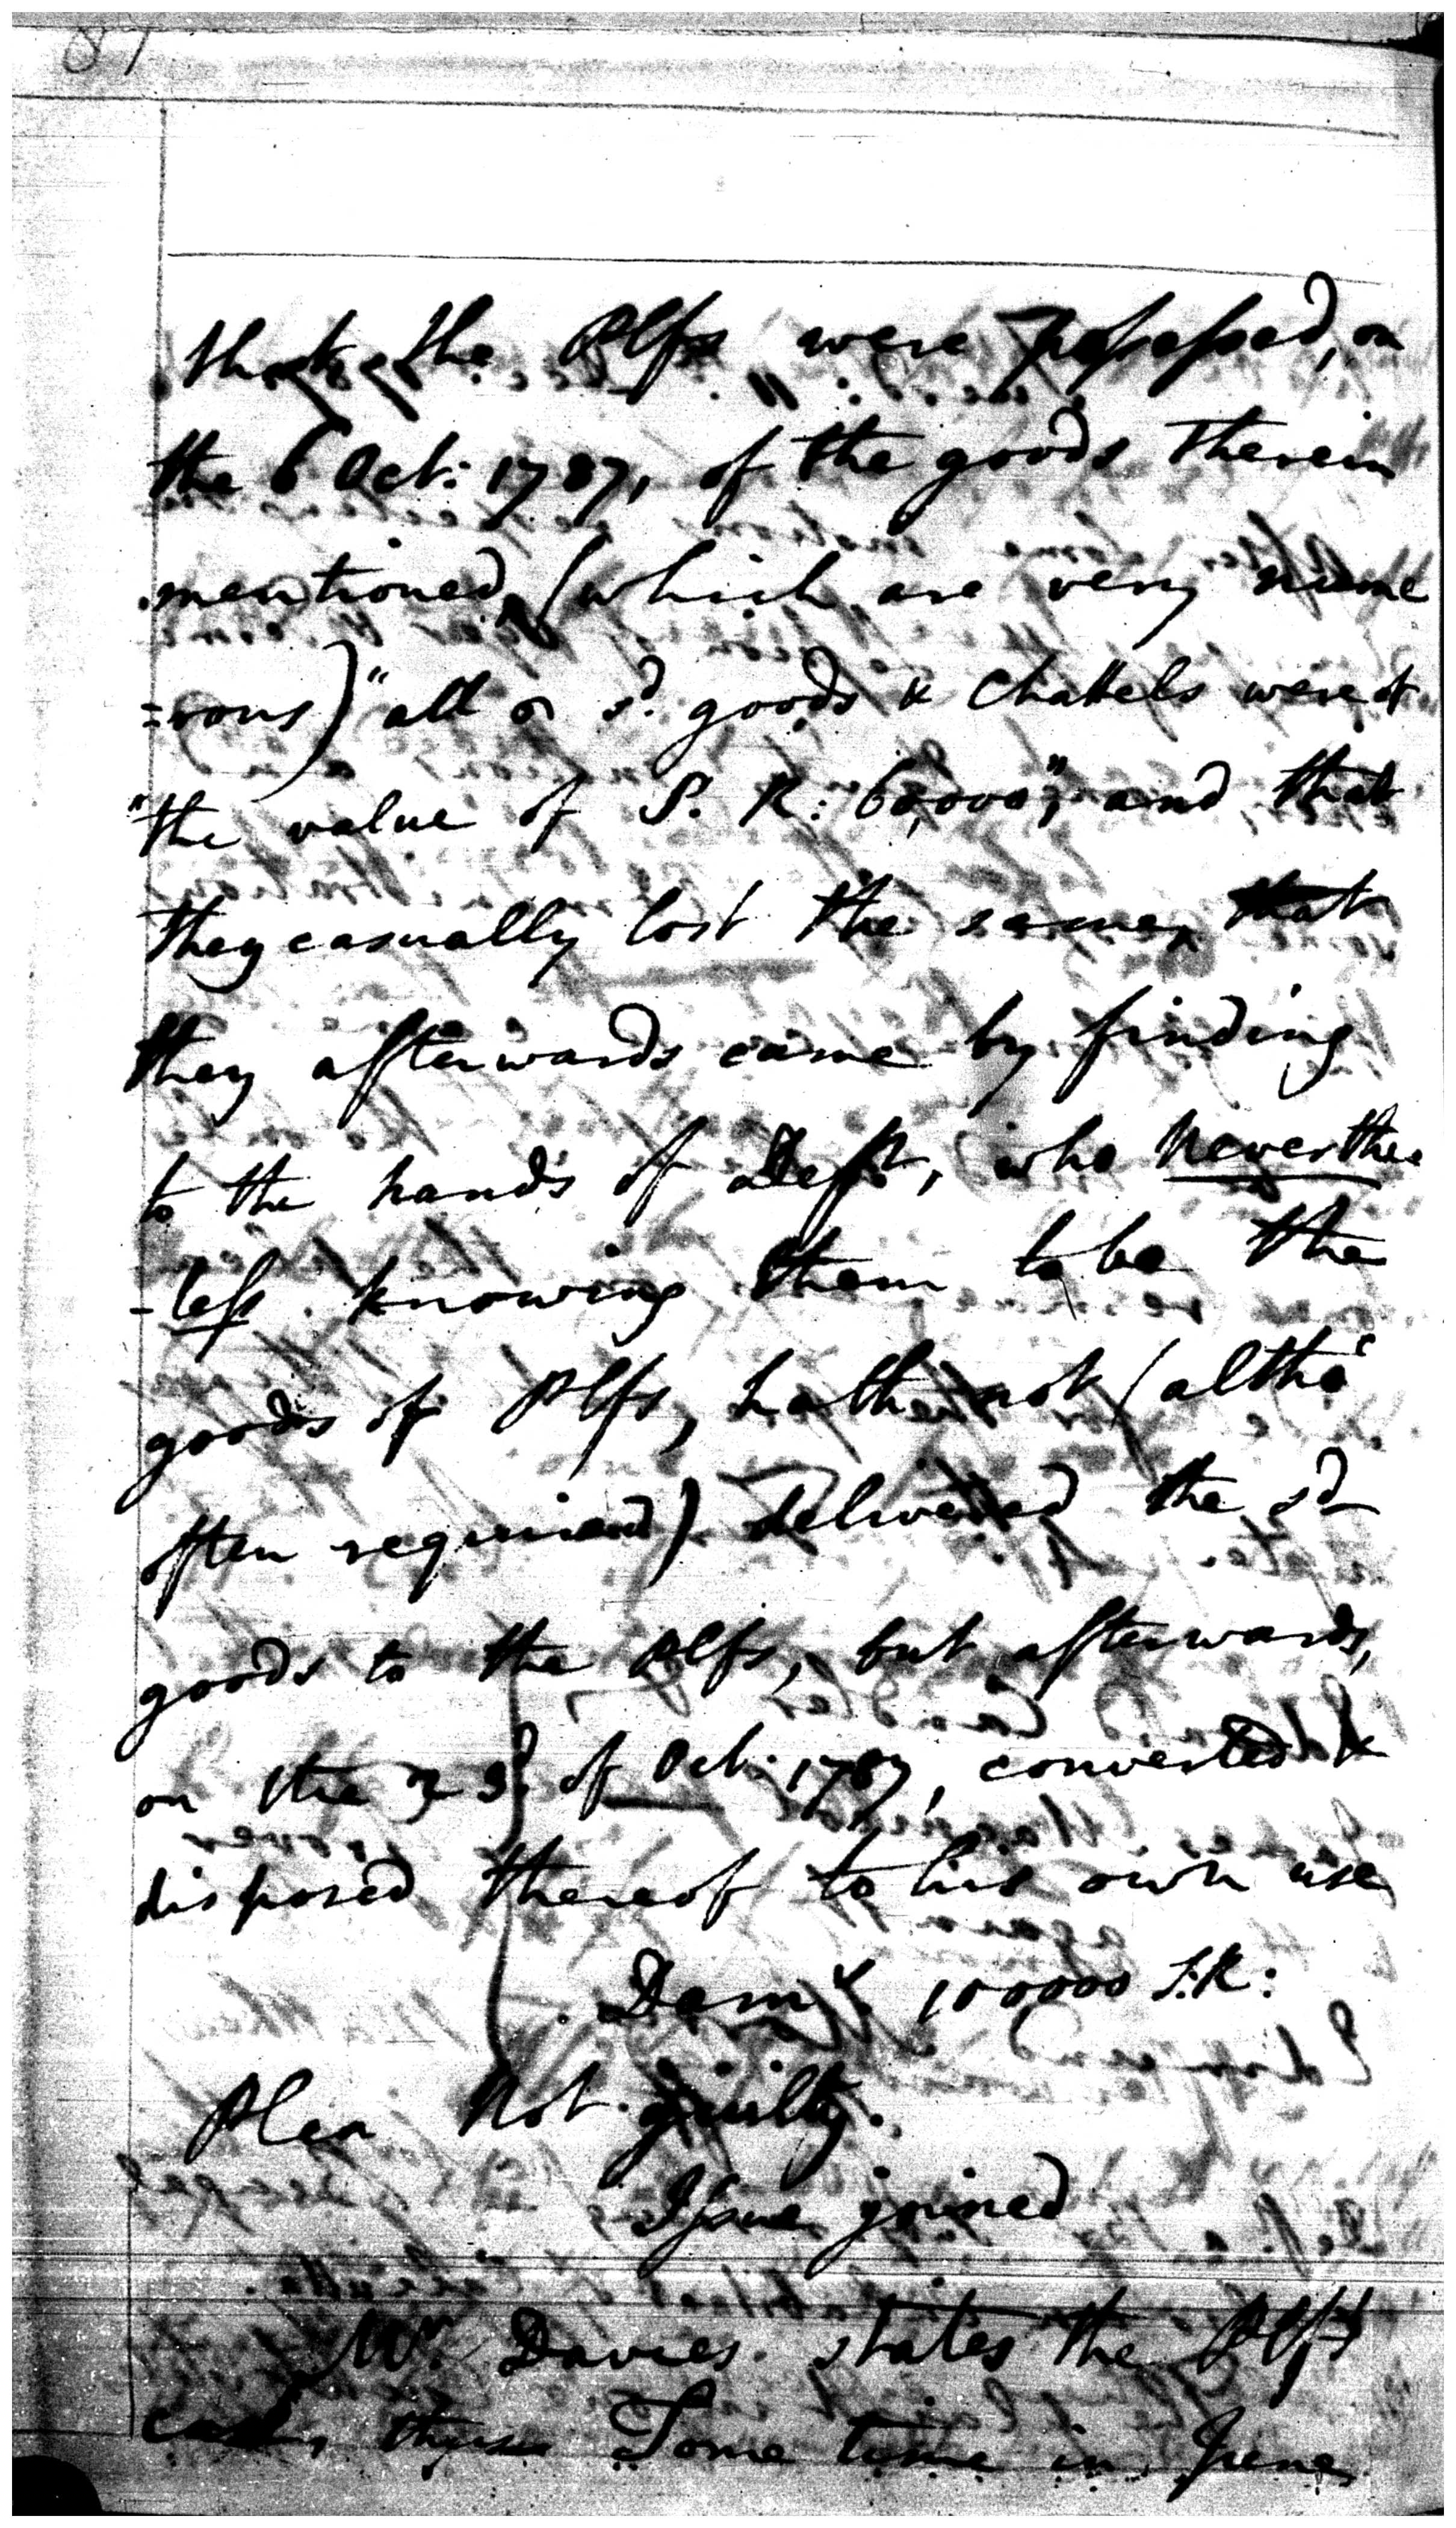 87
that the Plfs were possessed, on
the 6 Oct: 1787, of the goods therein
mentioned, (which are very nume
=rous) "all sd. goods & Chattels were of
"the value of S. R: 60,000", and that
they casually lost the same, that
they afterwards came by finding
to the hands of Deft, who Neverthe
-less knowing them to be the
goods of Plfs, hath not (altho'
often required) delivered the sd
goods to the Plfs, but afterwards,
on the 23d of Oct: 1787, converted &
disposed thereof to his own use
Dams. 100000 S.R:
Plea Not guilty.
Issue joined
Mr. Davies states the Plfs
case, thus. Some time in June